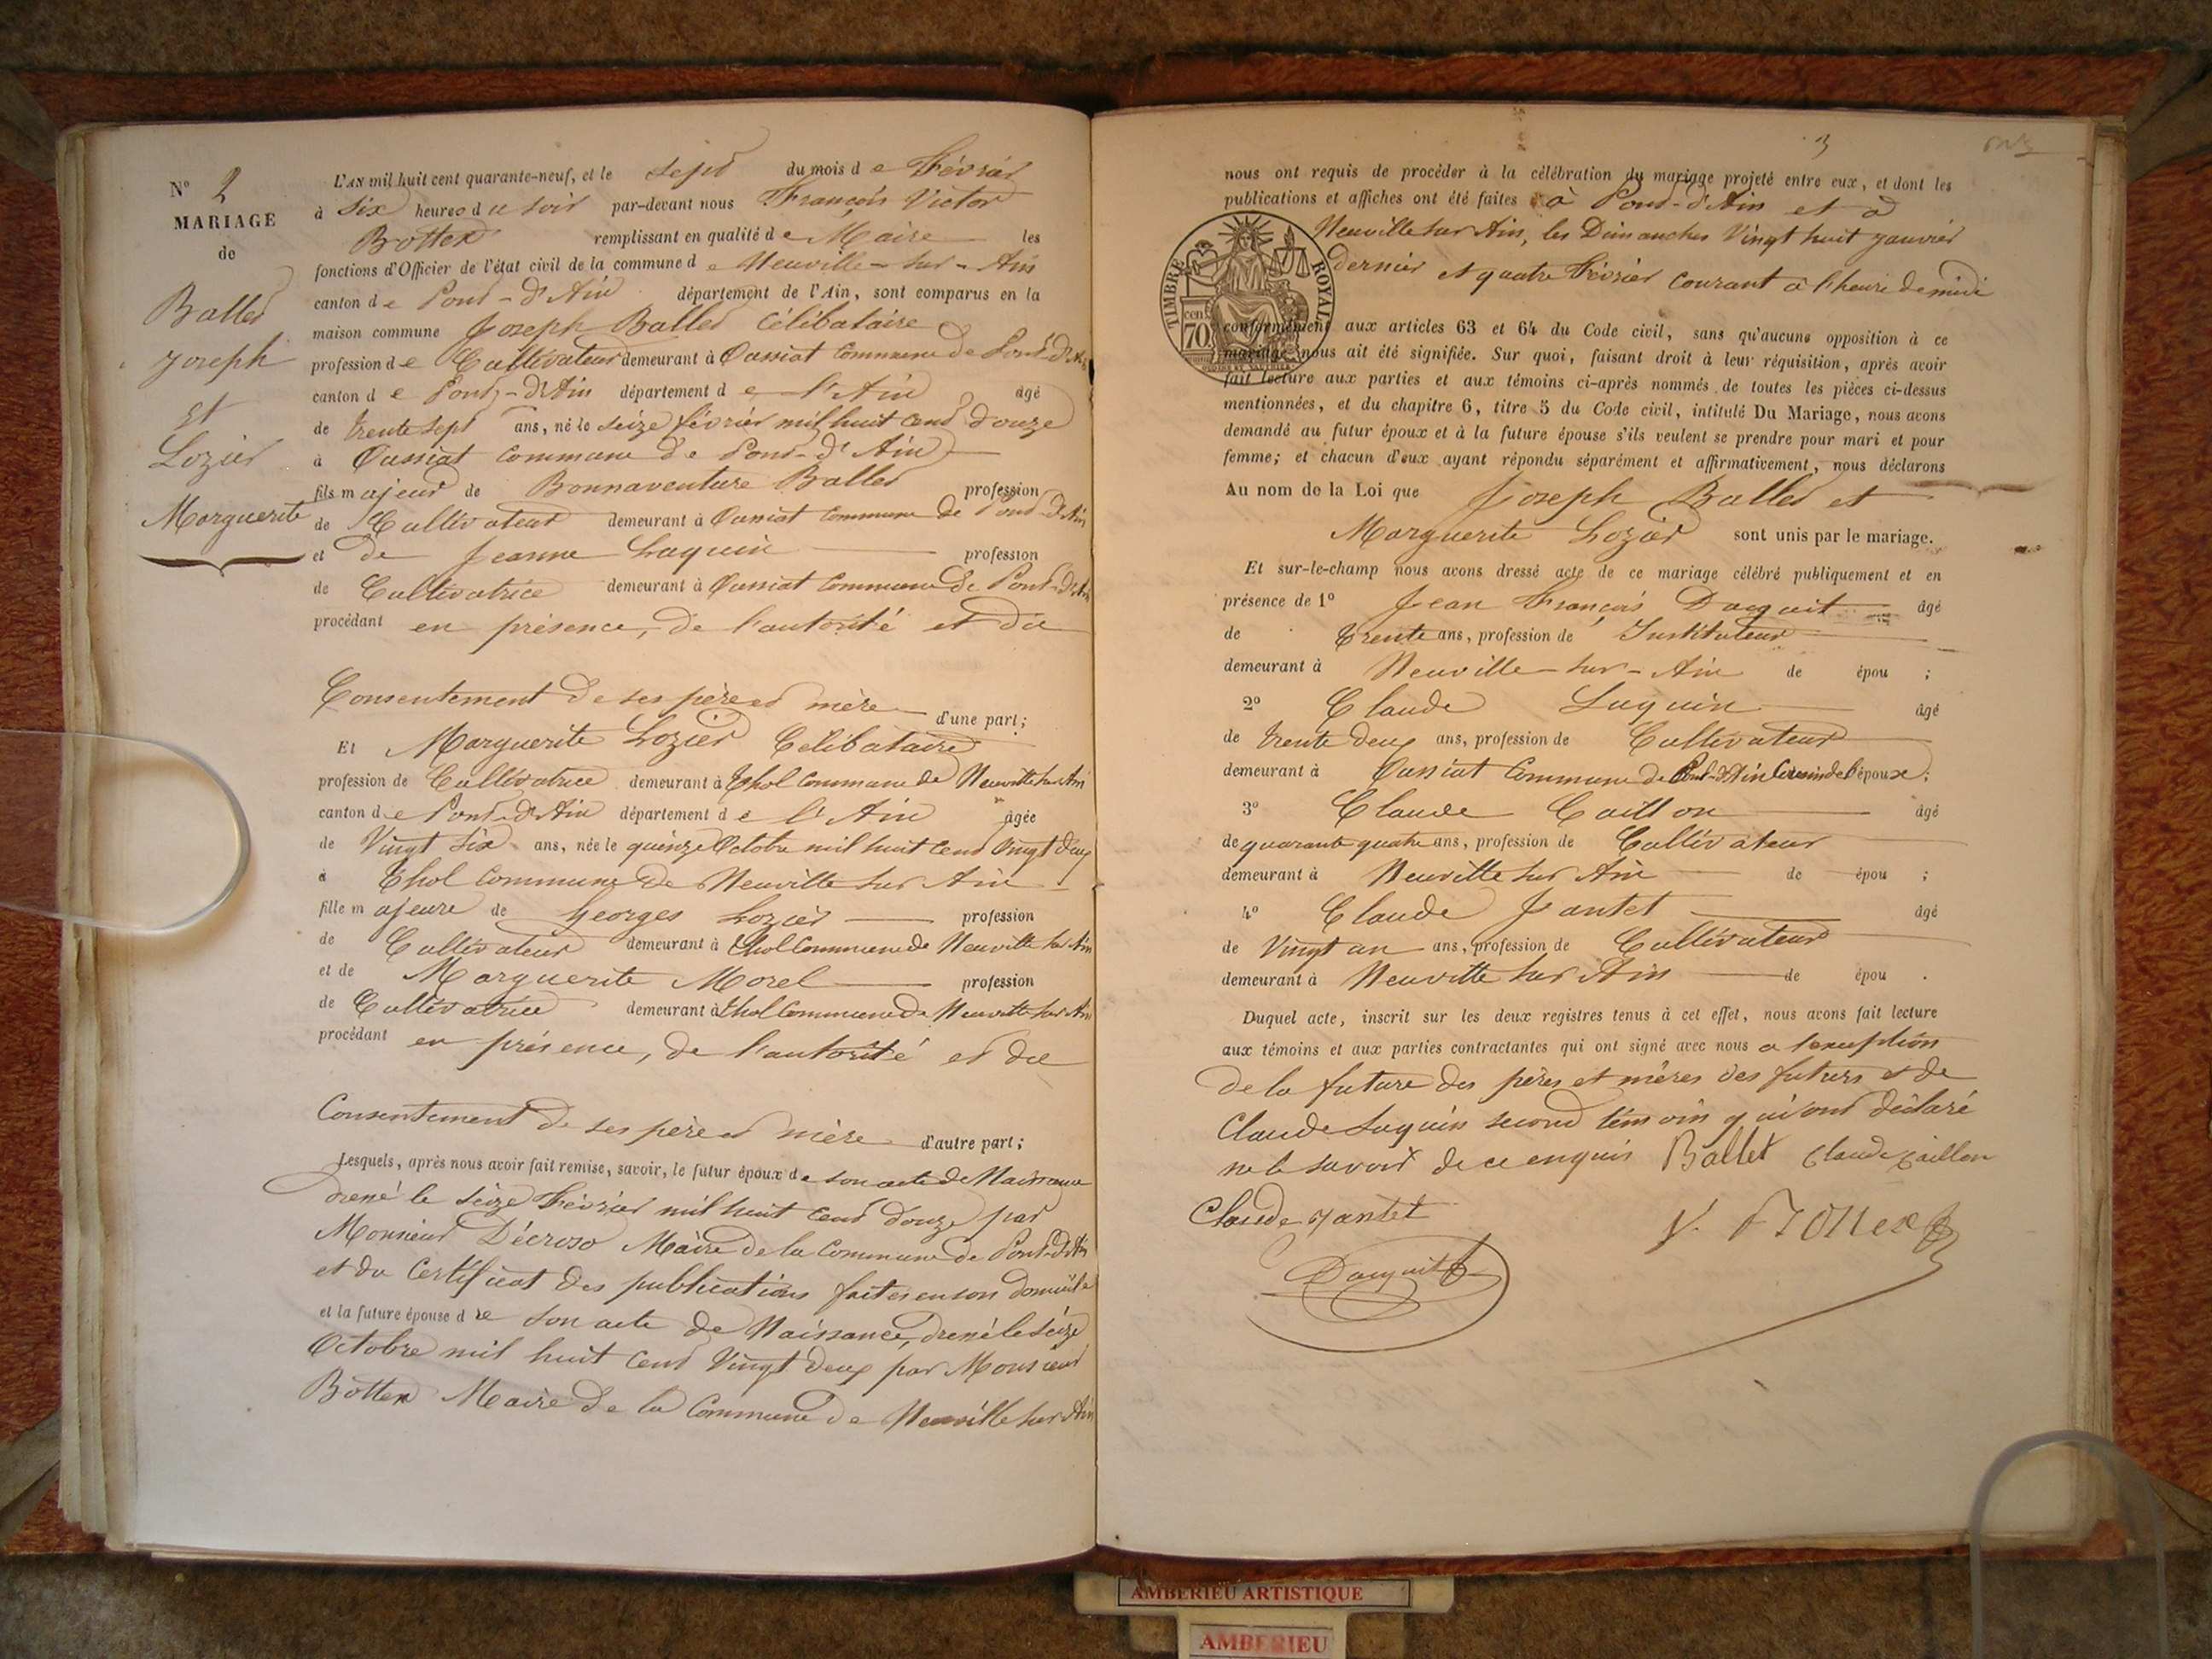 N° 2
MARIAGE
de
Ballet
Joseph
et
Lozier
Marguerite
L'AN mil huit cent quarante-neuf, et le sept du mois de Février
à Six heures du soir par-devant nous François Victor
Bottex remplissant en qualité de Maire les
fonctions d'Officier de l'état civil de la commune de Neuville-sur-Ain
canton de Pont-d'Ain département de l'Ain, sont comparus en la
maison commune Joseph Ballet Célibataire
profession de Cultivateur demeurant à Oussiat Commune de Pont-d'Ain
canton de Pont-d'Ain département de l'Ain âgé
de trente sept ans, né le seize février mil huit cent douze
à Oussiat Commune de Pont-d'Ain
fils majeur de Bonnaventure Ballet profession
de Cultivateur demeurant à Oussiat Commune de Pont-d'Ain
et de Jeanne Luquin profession
de Cultivatrice demeurant à Oussiat Commune de Pont-d'Ain
procédant en présence, de l'autorité et du
Consentement de ses père et mère d'une part;
Et Marguerite Lozier Célibataire
profession de Cultivatrice demeurant à Thol Commune de Neuville sur Ain
canton de Pont-d'Ain département de l'Ain âgée
de Vingt Six ans, née le quinze Octobre mil huit cent vingt deux
à Thol Commune de Neuville sur Ain
fille majeure de Georges Lozier profession
de Cultivateur demeurant à Thol Commune de Neuville sur Ain
et de Marguerite Morel profession
de Cultivatrice demeurant à Thol Commune de Neuville sur Ain
procédant en présence, de l'autorité et du
Consentement de ses père et mère d'autre part;
Lesquels, après nous avoir fait remise, savoir, le futur époux de son acte de Naissance
dressé le seize Février mil huit cent douze par
Monsieur Décroso Maire de la Commune de Pont-d'Ain
et du Certificat des publications faites en son domicile
et la future épouse de son acte de Naissance, dressé le seize
Octobre mil huit cent Vingt deux par Monsieur
Bottex Maire de la Commune de Neuville sur Ain
3
nous ont requis de procéder à la célébration du mariage projeté entre eux, et dont les
publications et affiches ont été faites à Pont-d'Ain et à
Neuville sur Ain, les Dimanches Vingt huit janvier
dernier et quatre Février courant à l'heure de midi
TIMBRE ROYAL
70 cent
conformément aux articles 63 et 64 du Code civil, sans qu'aucune opposition à ce
mariage nous ait été signifiée. Sur quoi, faisant droit à leur réquisition, après avoir
fait lecture aux parties et aux témoins ci-après nommés de toutes les pièces ci-dessus
mentionnées, et du chapitre 6, titre 5 du Code civil, intitulé Du Mariage, nous avons
demandé au futur époux et à la future épouse s'ils veulent se prendre pour mari et pour
femme; et chacun d'eux ayant répondu séparément et affirmativement, nous déclarons
Au nom de la Loi que Joseph Ballet et
Marguerite Lozier sont unis par le mariage.
Et sur-le-champ nous avons dressé acte de ce mariage célébré publiquement et en
présence de 1° Jean François Daguit âgé
de trente ans, profession de Instituteur
demeurant à Neuville-sur-Ain de épou ;
2° Claude Luquin âgé
de trente deux ans, profession de Cultivateur
demeurant à Oussiat Commune de Pont-d'Ain Cousin de l'époux;
3° Claude Caillon âgé
de quarante quatre ans, profession de Cultivateur
demeurant à Neuville sur Ain de épou ;
4° Claude Jantet âgé
de Vingt un ans, profession de Cultivateur
demeurant à Neuville sur Ain de épou .
Duquel acte, inscrit sur les deux registres tenus à cet effet, nous avons fait lecture
aux témoins et aux parties contractantes qui ont signé avec nous a l'exception
de la future des pères et mères des futurs et de
Claude Luquin second témoin qui ont déclaré
ne le savoir de ce enquis Ballet Claude Caillon
Claude Jantet V. Bottex
Daguit
AMBERIEU ARTISTIQUE
AMBERIEU